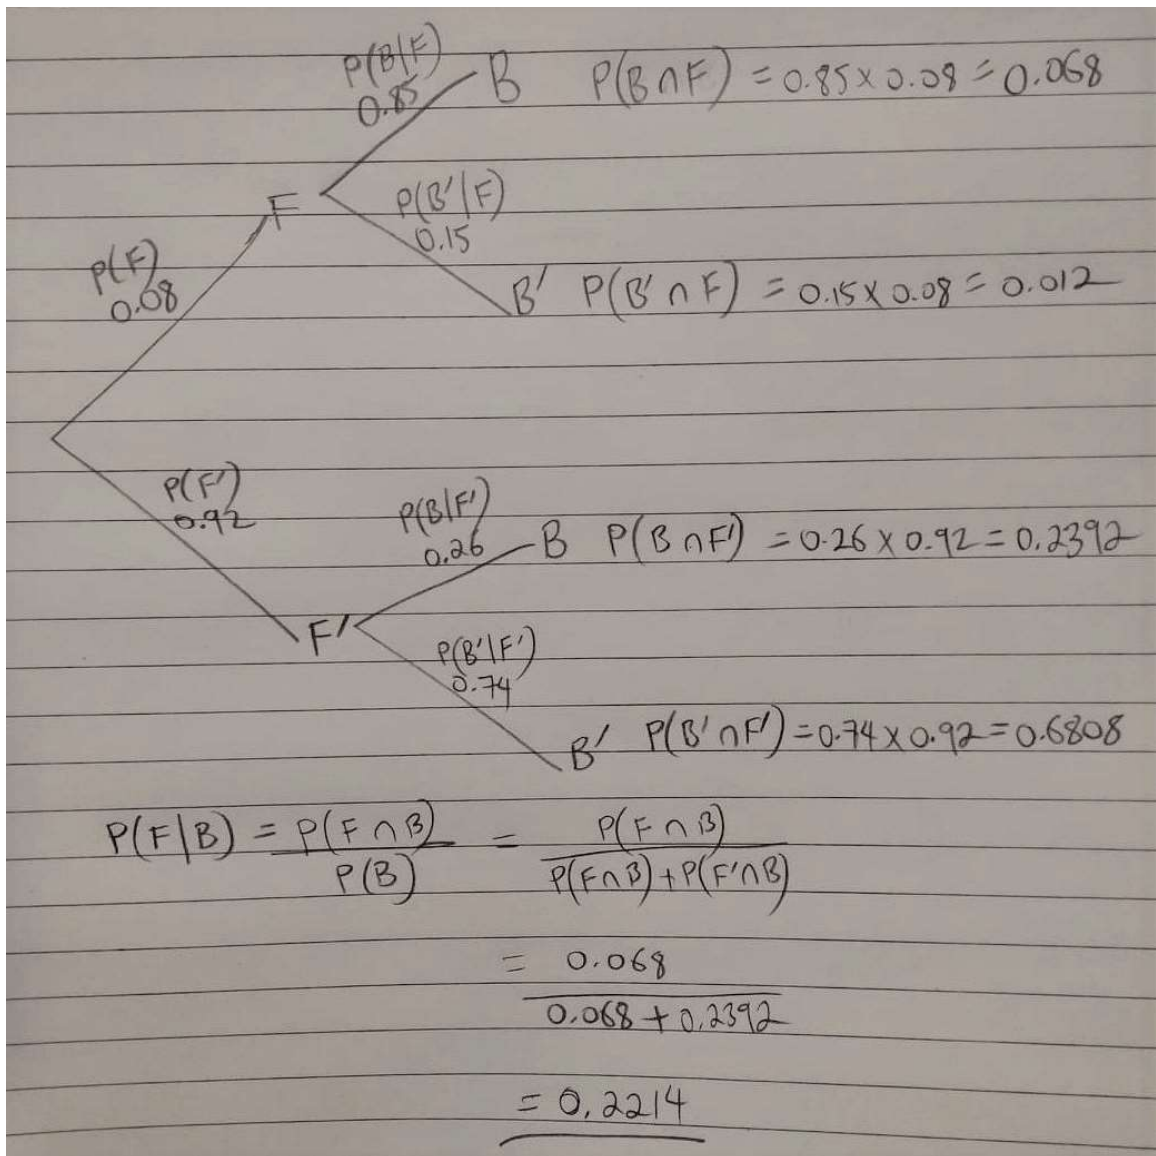 P(B|F)
0.85
B P(B∩F) = 0.85×0.08 = 0.068
F
P(B'|F)
0.15
P(F)
0.08
B' P(B'∩F) = 0.15×0.08 = 0.012
P(F')
0.92
P(B|F')
0.26
B P(B∩F') = 0.26×0.92 = 0.2392
F'
P(B'|F')
0.74
B' P(B'∩F') = 0.74×0.92 = 0.6808
P(F|B) = P(F∩B) / P(B) = P(F∩B) / P(F∩B)+P(F'∩B)
= 0.068 / 0.068 + 0.2392
= 0.2214